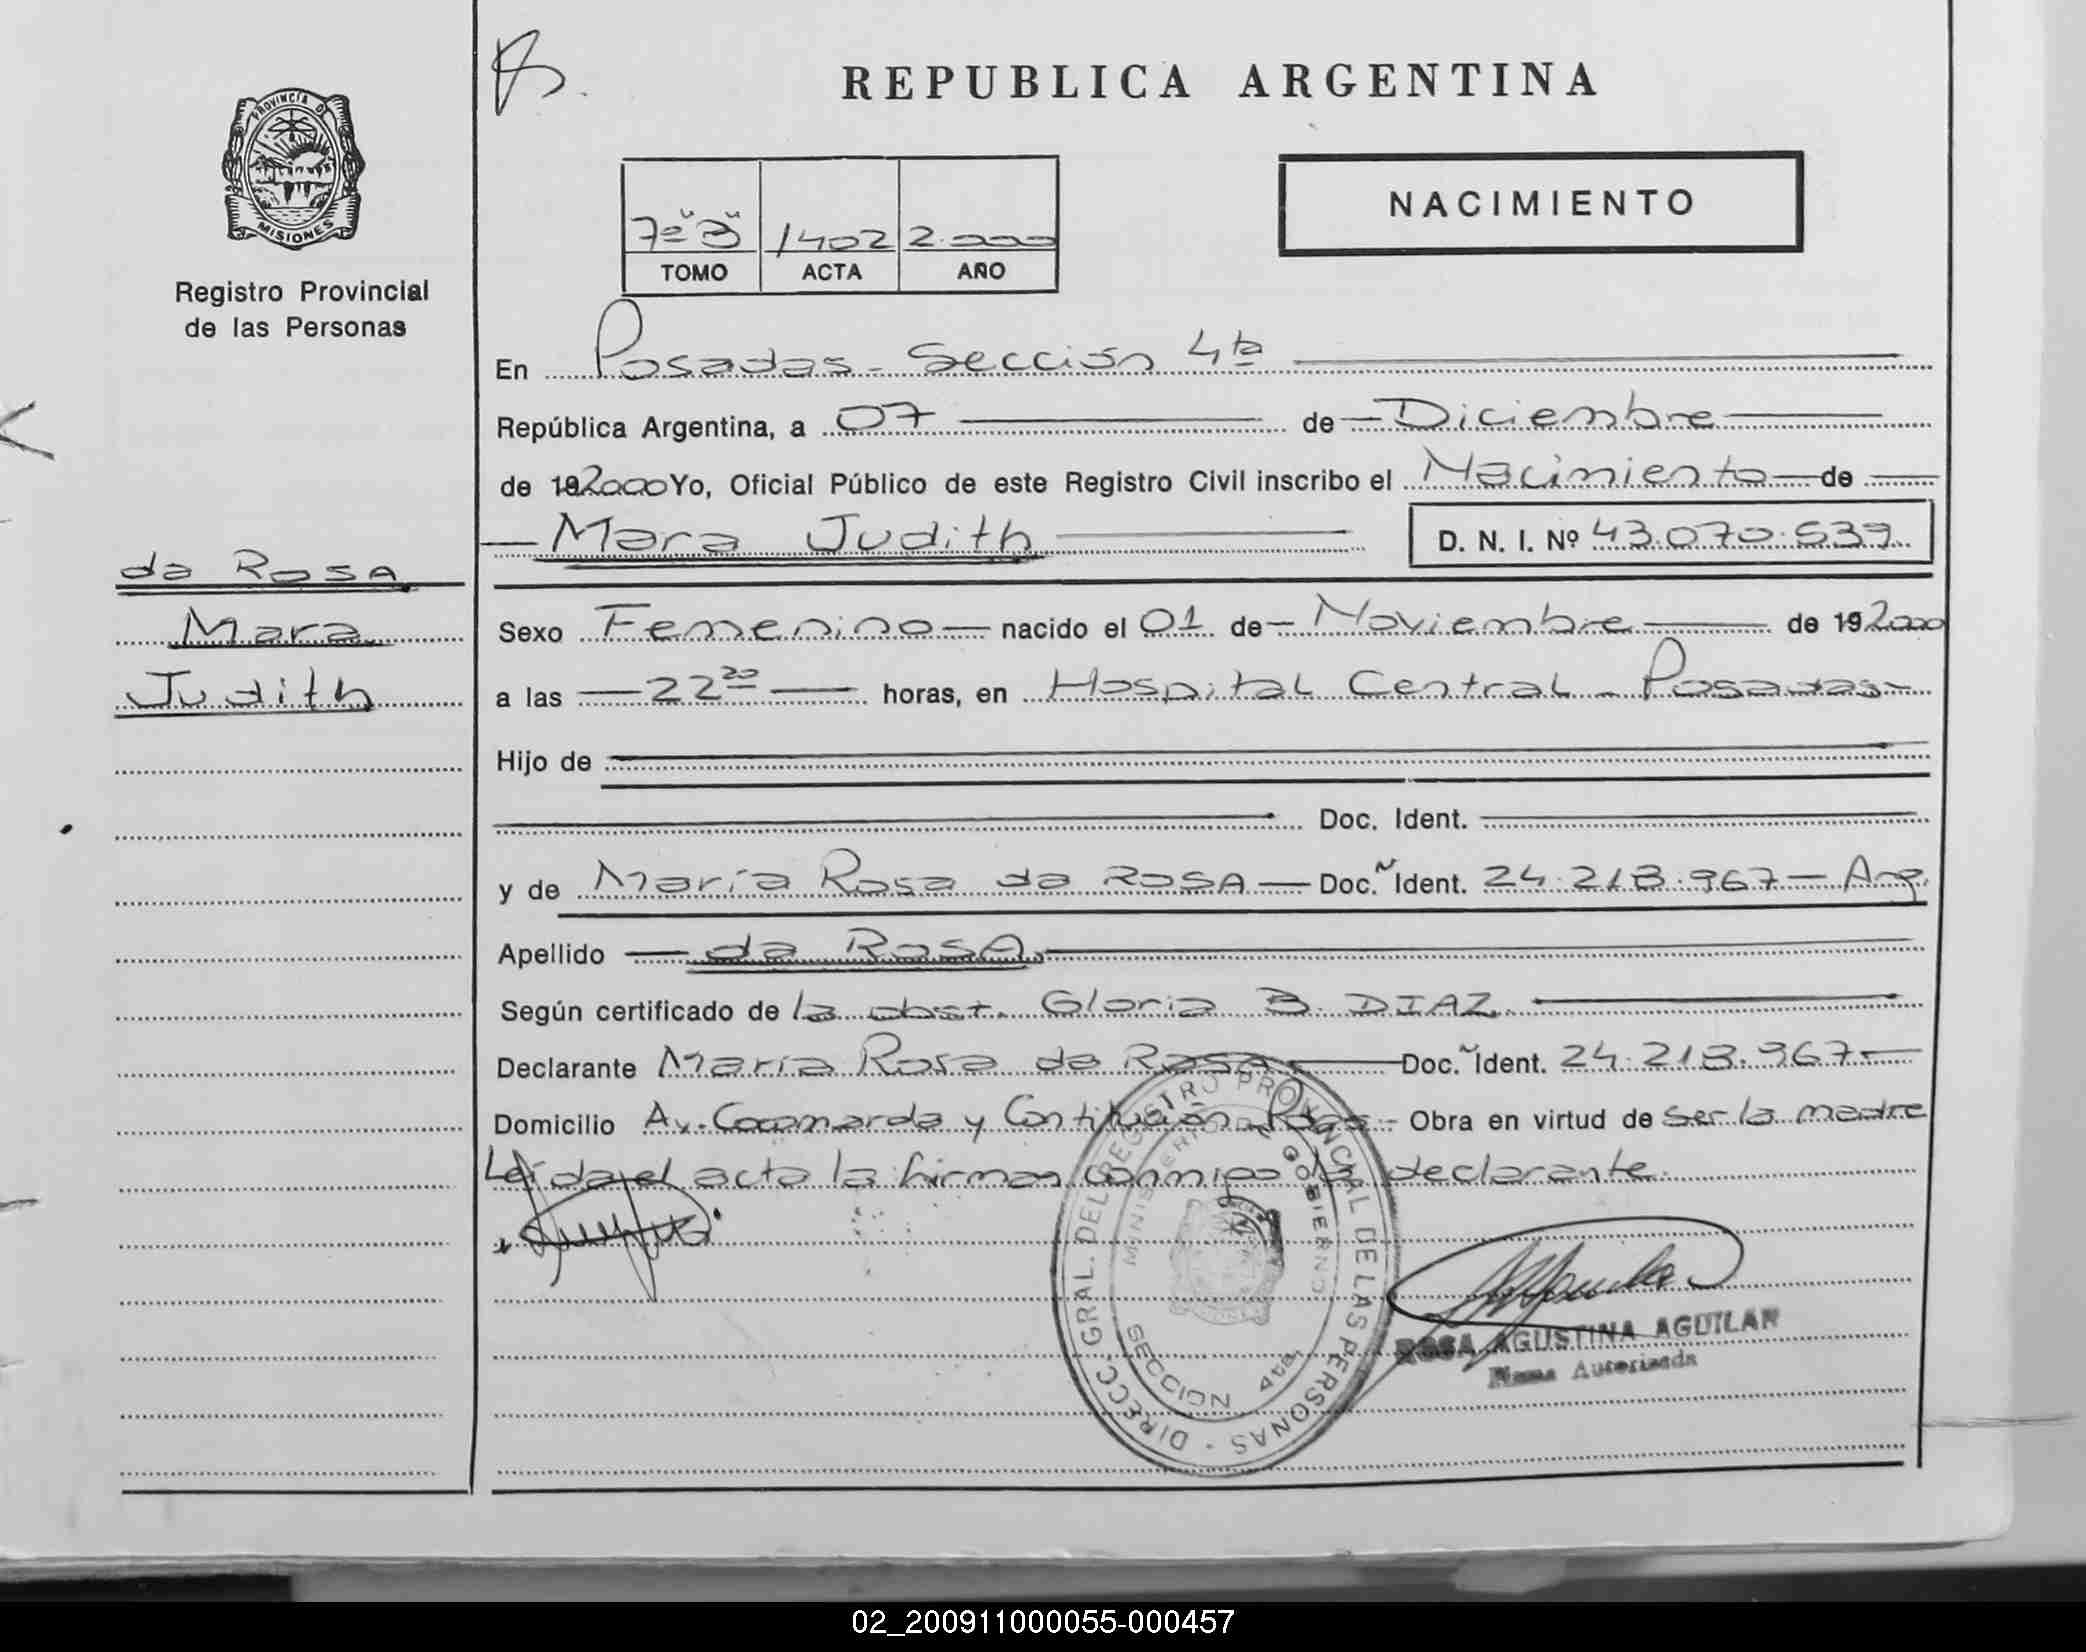 REPUBLICA ARGENTINA
PROVINCIA DE
MISIONES
Registro Provincial
de las Personas
7º "B" 1402 2.000
TOMO ACTA AÑO
NACIMIENTO
En Posadas - Sección 4ta
República Argentina, a 07 de Diciembre
de 192000 Yo, Oficial Público de este Registro Civil inscribo el Nacimiento de
Mara Judith D. N. I. Nº 43.070.539
da ROSA
Mara
Judith
Sexo Femenino nacido el 01 de Noviembre de 192000
a las 22 20 horas, en Hospital Central - Posadas
Hijo de
Doc. Ident.
y de María Rosa da ROSA Doc. Ident. 24.213.967 - Arg.
Apellido da ROSA
Según certificado de la obst. Gloria B. DIAZ
Declarante María Rosa da ROSA Doc. Ident. 24.213.967
Domicilio Av. y Pdas - Obra en virtud de ser la madre
Leída el acta la firman conmigo la declarante.
DIRECC. GRAL. DEL REGISTRO PROVINCIAL DE LAS PERSONAS
MINISTERIO DE GOBIERNO
SECCION 4ta.
ROSA AGUSTINA AGUILAR
Firma Autorizada
02_200911000055-000457